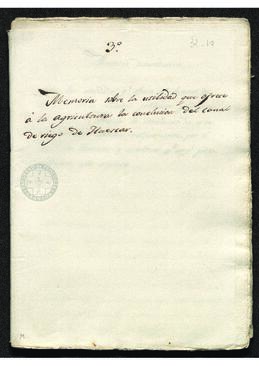 3º
Memoria sobre la utilidad que ofrece
à la agricultura la conclusion del canal
de riego de Huescar.